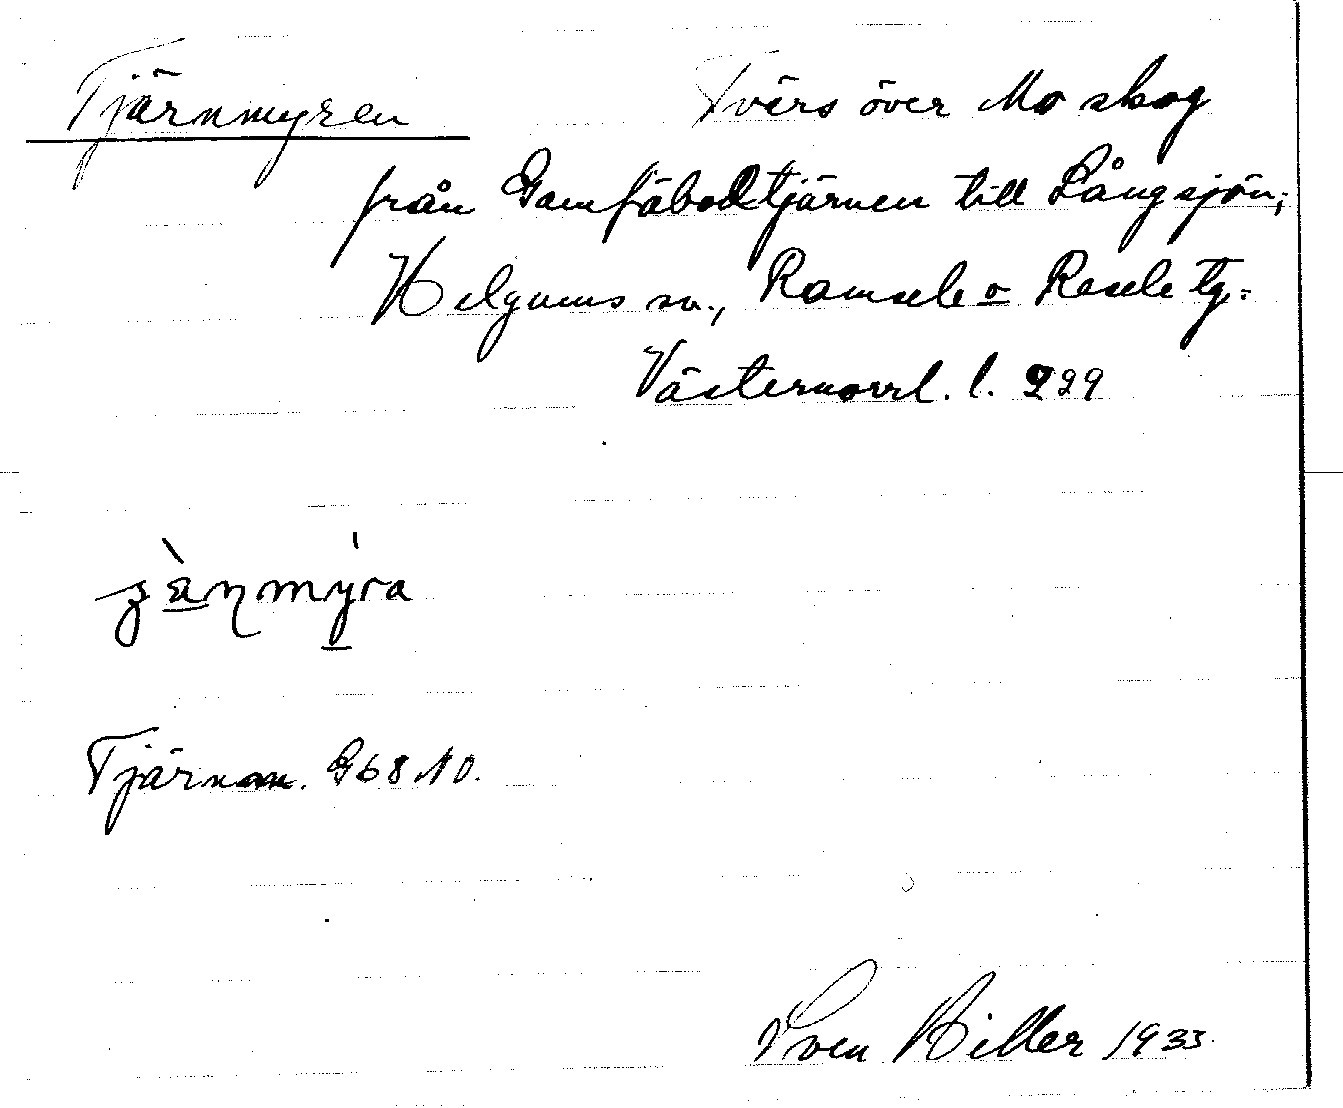 Tjärnmyren
Tvärs över Mo skog
från Gamfäbodtjärnen till Långsjön;
Helgums sn., Ramsele o Resele tg.
Västernorrl. l. 229
Tjärnm. G68 NO.
Sven Biller 1933